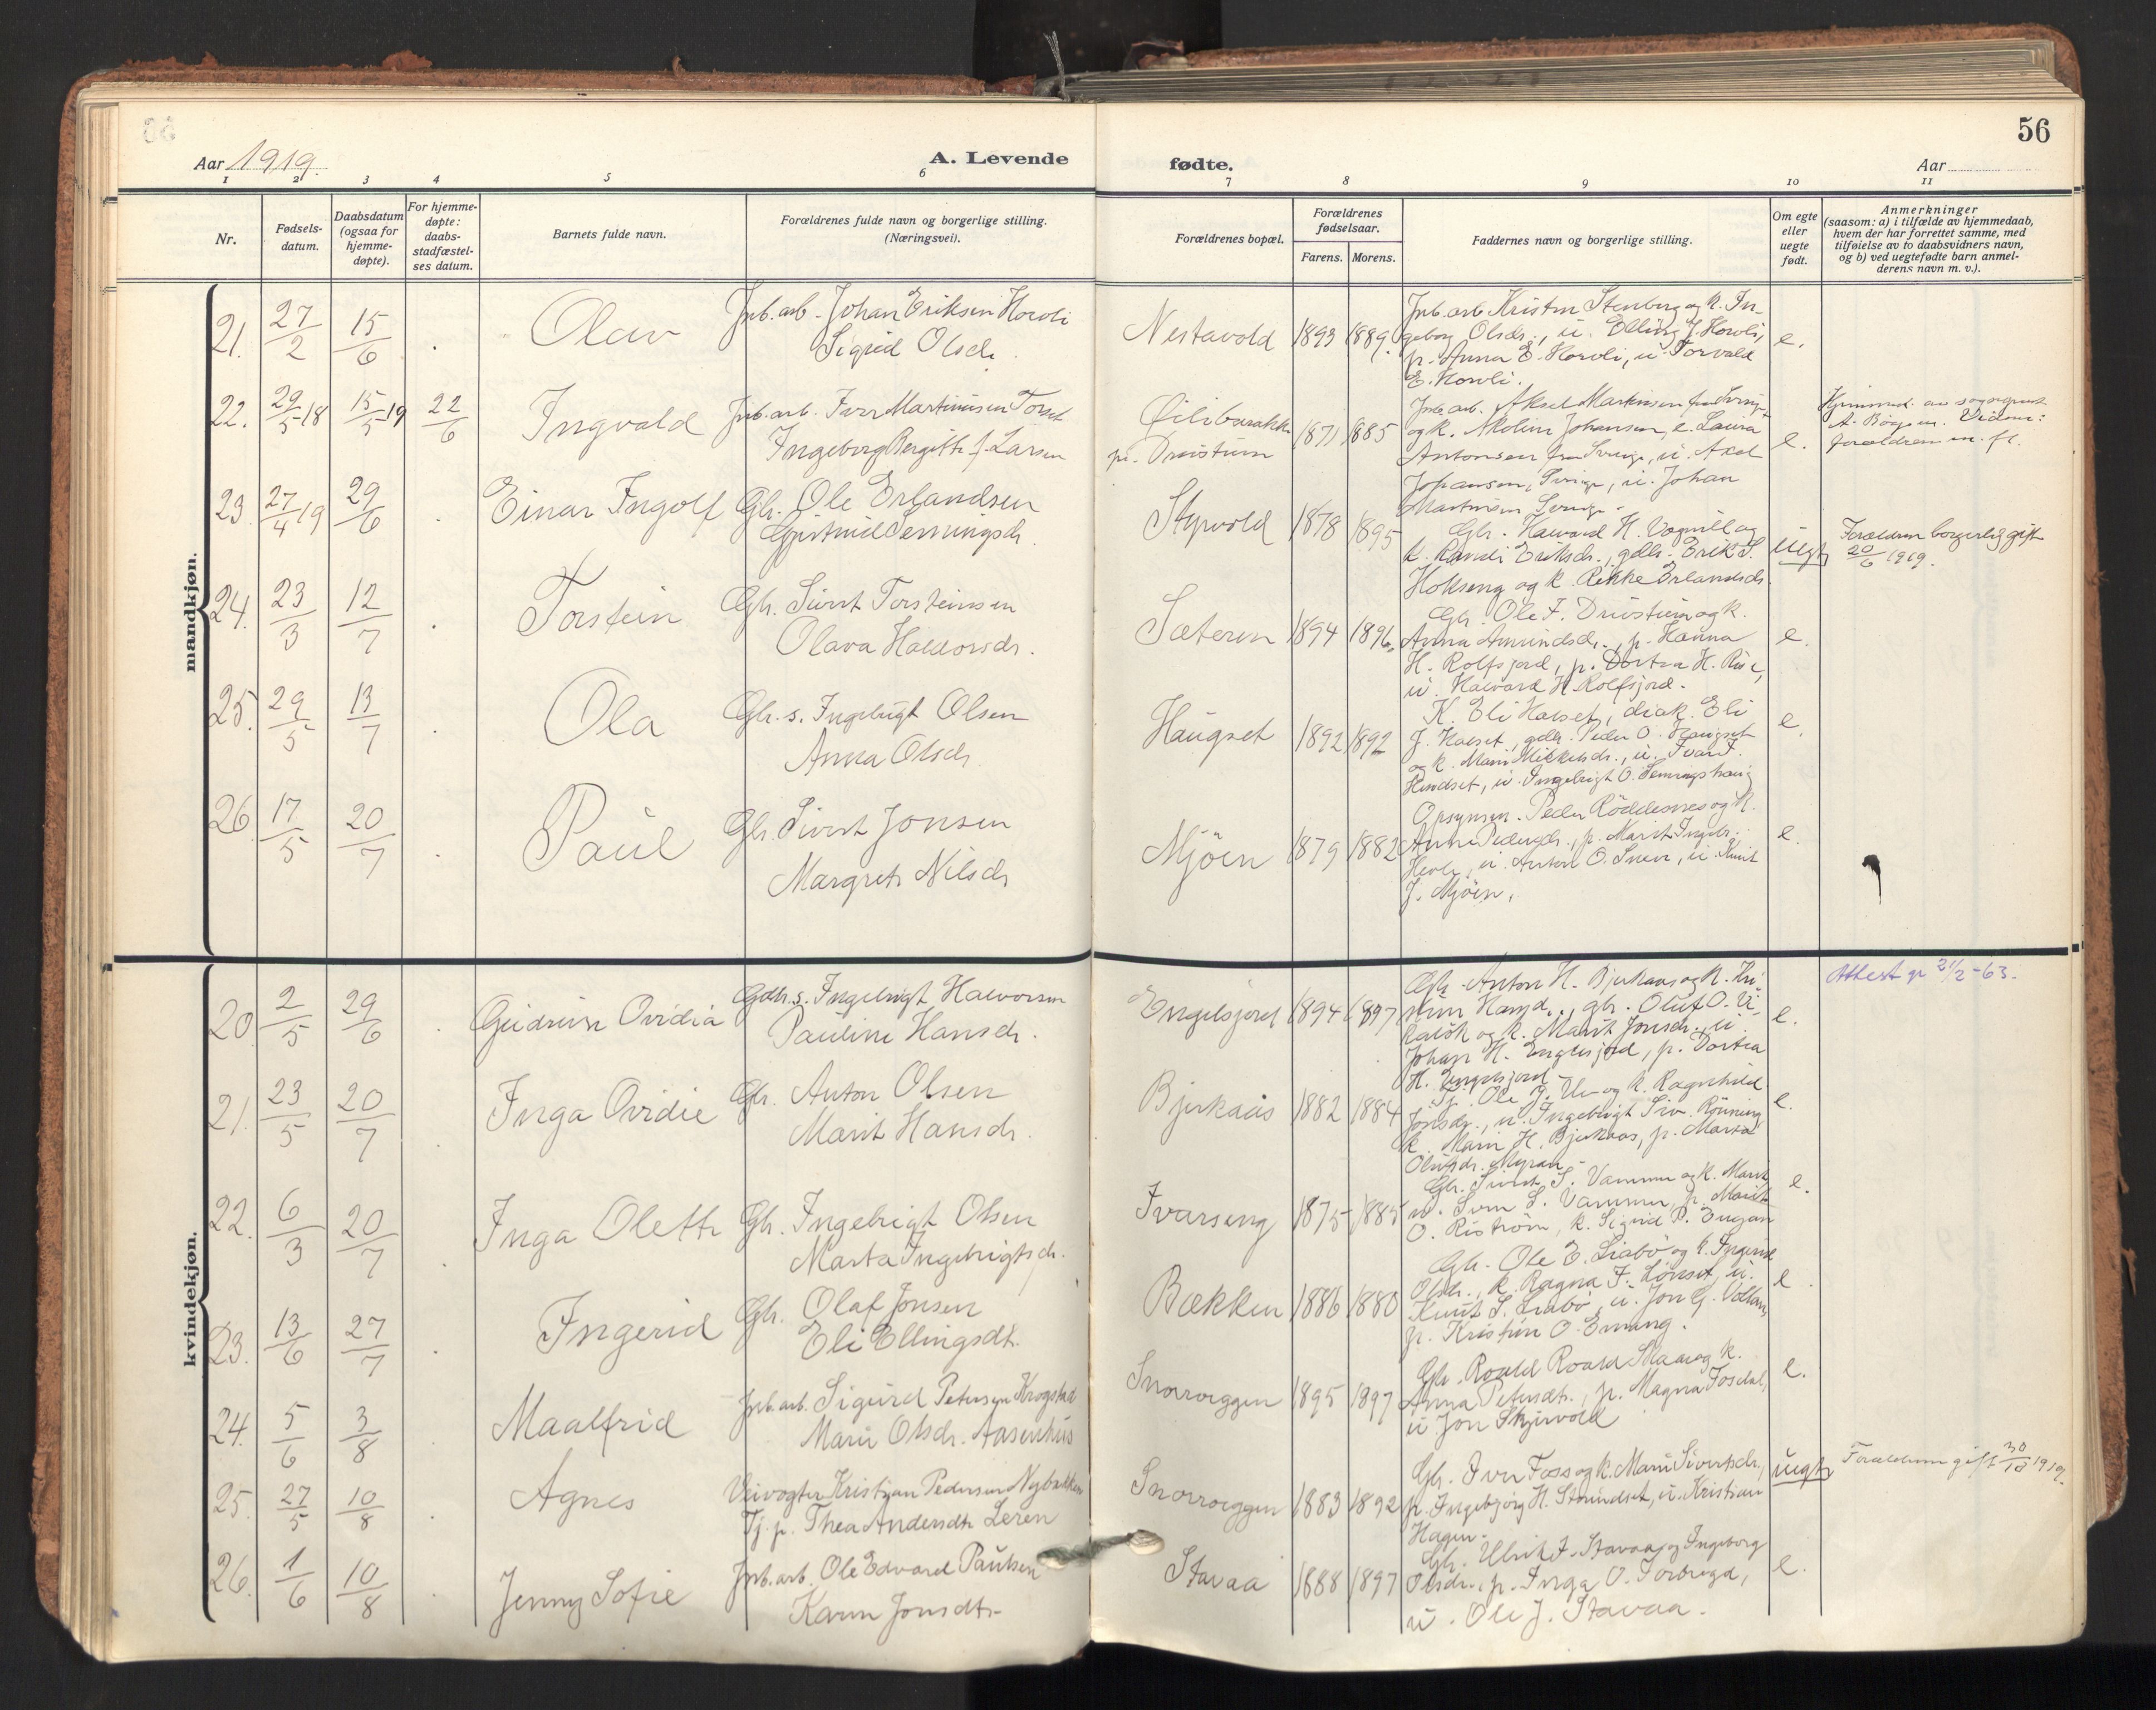 56
Aar 1919.
A. Levende
fødte.
Aar
1 2 3 4 5 6 7 8 9 10 11
Nr.
Fødsels-
datum.
Daabsdatum
(ogsaa for
hjemme-
døpte).
For hjemme-
døpte:
daabs-
stadfæstel-
ses datum.
Barnets fulde navn.
Forældrenes fulde navn og borgerlige stilling.
(Næringsvei).
Forældrenes bopæl.
Forældrenes
fødselsaar.
Farens. Morens.
Faddernes navn og borgerlige stilling.
Om egte
eller
uegte
født.
Anmerkninger
(saasom: a) i tilfælde av hjemmedaab,
hvem der har forrettet samme, med
tilføielse av to daabsvidners navn,
og b) ved uegtefødte barn anmel-
derens navn m. v.).
mandkjøn.
21. 27/2 15/6 . Olav
Jnb.arb. Johan Eriksen Horvli
Sigrid Olsdr.
Nestavold 1893 1889.
Jnb. arb. Kristen Stenberg og k. In-
geborg Olsdr., u. Elling J. Horvli,
p. Anna E. Horvli, u. Torvald
E. Horvli.
e.
22. 29/5 18 15/5 19 22/6 Ingvald
Jnb. arb. Iver Martinusen
Ingeborg Bergitte f. Larsen
pr. Drivstuen 1871 1885
Jnb. arb. Aksel Martinsen fra Sverige
og k. Johansen, e. Laura
Antonsen fra Sverige, u. Axel
Johansen, Sverige, u. Johan
Martinsen Sverige.
e.
A. Vidner:
forældrene m. fl.
23. 27/4 19 29/6 . Einar Ingolf
Gbr. Ole Erlandsen
Gjertrud Semmingsdr.
Styrvold 1878 1895
Gbr. Halvard H. Vognill og
k. Randi Eriksdr., gdbr. Erik S.
Hokseng og k. Rikke Erlandsdr.
uegte
Forældrene borgerlig gift
20/6 1919.
24. 23/3 12/7 . Torstein
Gbr. Sivert Torsteinsen
Olava Haldorsdr.
Sæteren 1894 1896
Gbr. Ole I. Drivstuen og k.
Anna Amundsdr., p. Hanna
H. Rolfsjord, p. Dortea H. Rise,
u. Halvard H. Rolfsjord.
e.
25. 29/5 13/7 . Ola
Gbr. s. Ingebrigt Olsen
Anna Olsdr.
Haugset 1892 1892
K. Eli Halset, diak. Eli
J. Halset, gdbr. Peder O. Haugset
og k. Marit Mikkelsdr., u. Ivar I.
Hindset, u. Ingebrigt O. Semmingshaug
e.
26 17/5 20/7 . Paul
Gbr. Sivert Jonsen
Margrete Nilsdr.
Mjöen 1879 1882
Opsynsm. Peder Röddesnes og k.
Anne Pedersdr., p. Marit Ingebr.
Hevle, u. Anton O. Snever, u. Knut
J. Mjöen.
e.
kvindekjøn.
20. 2/5 29/6 . Gudrun Ovidia
Gdbr. s. Ingebrigt Halvorsen
Pauline Hansdr.
Engelsjord 1894 1897
Gbr. Anton H. Bjerkaas og k. Kri-
stine Hansd., gbr. Oluf O. Vi-
kalök og k. Marit Jonsdr., u.
Johan H. Englesjord, p. Dortea
H. Engelsjord.
e.
Attest gr 21/2-63.
21. 23/5 20/7 . Inga Ovidie
Gbr. Anton Olsen
Marit Hansdr.
Bjerkaas 1882 1884
Ole J. Uv og k. Ragnhild
Jonsdr., u. Ingebrigt Siv. Röining
k. Marie H. Bjerkaas, p. Marta
Olufsdr. Myran.
e.
22. 6/3 20/7 . Inga Olette
Gbr. Ingebrigt Olsen
Marta Ingebrigtsdr.
Ivarseng 1875 1885
Gbr. Sivert S. Vammer og k. Marit
u. Sven S. Vammer, p. Marit
O. Riström, k. Sigrid P. Engan
e.
23. 13/6 27/7 . Ingerid
Gbr. Olaf Jonsen
Eli Ellingsdt.
Bækken 1886 1880
Gbr. Ole E. Liabö og k. Ingerid
Olsdr., k. Ragna I. Lönset, u.
Knut S. Liabö, u. Jon G. Vollan,
p. Kristine O. Emang.
e.
24. 5/6 3/8 . Maalfrid
Jnb. arb. Sigurd Petersen Krogstad
Marie Olsdr. Aasenhus
Snorroeggen 1895 1897
Gbr. Roald Roald Skaar og k.
Anna Petersdt., p. Magna Fosdal,
u. Jon Skjervold
e.
25. 27/5 10/8 . Agnes
Veivogter Kristian Pedersen Nybakken
Tj. p. Thea Andersdtr. Leren
Snorroeggen 1883 1892
Gbr. Iver Foss og k. Marie Sivertsdr.,
p. Ingebjörg H. Strindset, u. Kristian
Hagen.
uegte
Forældrene gift 30/10 1919.
26. 1/6 10/8 . Jenny Sofie
Jnb. arb. Ole Edvard Paulsen
Karen Jonsdtr.
Stavaa 1888 1897
Gbr. Ulrik I. Stavaas og Ingeborg
Olsdr., p. Inga O. Torbregd,
u. Ole J. Stavaa.
e.